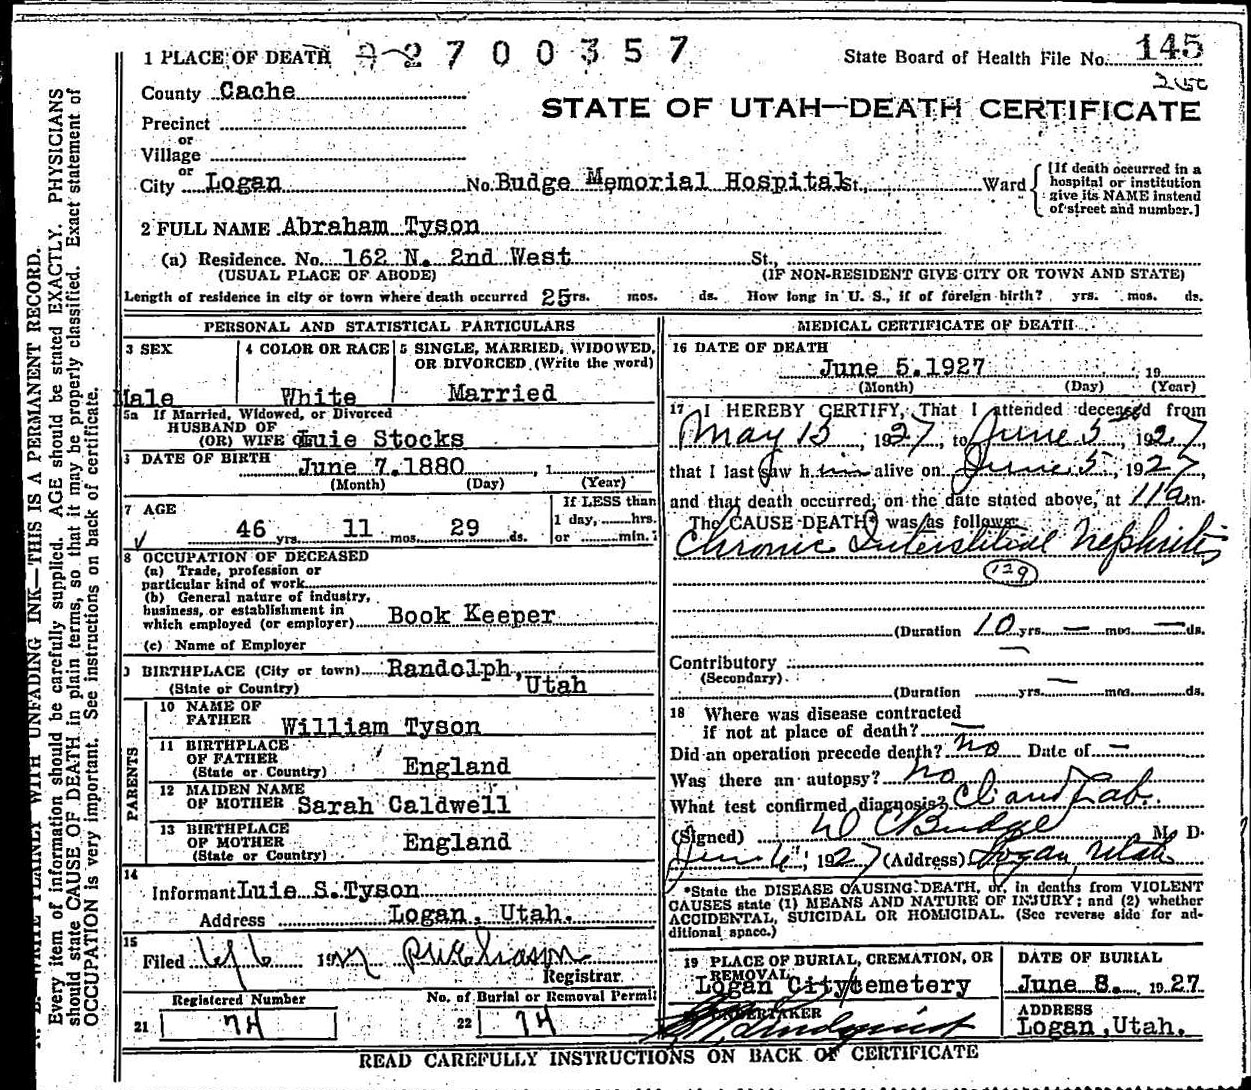 1 PLACE OF DEATH 2700357 State Board of Health File No. 145
County Cache
STATE OF UTAH—DEATH CERTIFICATE
Precinct
or
Village
or
City Logan No. Budge Memorial Hospital St., Ward
[If death occurred in a
hospital or institution
give its NAME instead
of street and number.]
2 FULL NAME Abraham Tyson
(a) Residence. No. 162 N. 2nd West St.,
(USUAL PLACE OF ABODE) (IF NON-RESIDENT GIVE CITY OR TOWN AND STATE)
Length of residence in city or town where death occurred 25 yrs. mos. ds. How long in U. S., if of foreign birth? yrs. mos. ds.
PERSONAL AND STATISTICAL PARTICULARS
3 SEX
Male
4 COLOR OR RACE
White
5 SINGLE, MARRIED, WIDOWED,
OR DIVORCED (Write the word)
Married
5a If Married, Widowed, or Divorced
HUSBAND OF
(OR) WIFE OF Luie Stocks
DATE OF BIRTH June 7.1880, 1
(Month) (Day) (Year)
7 AGE
46 yrs. 11 mos. 29 ds.
If LESS than
1 day, hrs.
or min.
8 OCCUPATION OF DECEASED
(a) Trade, profession or
particular kind of work
(b) General nature of industry,
business, or establishment in
which employed (or employer) Book Keeper
(c) Name of Employer
9 BIRTHPLACE (City or town) Randolph,
(State or Country) Utah
PARENTS
10 NAME OF
FATHER William Tyson
11 BIRTHPLACE
OF FATHER
(State or Country) England
12 MAIDEN NAME
OF MOTHER Sarah Caldwell
13 BIRTHPLACE
OF MOTHER
(State or Country) England
14
Informant Luie S.Tyson
Address Logan, Utah.
15
Filed 6/6 1927
Registrar
Registered Number
21 74
No. of Burial or Removal Permit
22 74
MEDICAL CERTIFICATE OF DEATH
16 DATE OF DEATH
June 5.1927 19
(Month) (Day) (Year)
17 I HEREBY CERTIFY, That I attended deceased from
May 15, 1927, to June 5, 1927,
that I last saw him alive on June 5, 1927
and that death occurred, on the date stated above, at 11 a m.
The CAUSE DEATH was as follows:
Chronic Interstitial Nephritis
129
(Duration 10 yrs. — mos. — ds.
Contributory
(Secondary)
(Duration yrs. — mos. ds.
18 Where was disease contracted
if not at place of death? —
Did an operation precede death? No Date of —
Was there an autopsy? No
What test confirmed diagnosis? Cl and Lab.
(Signed) D C Budge M. D.
June 6", 1927 (Address) Logan Utah
*State the DISEASE CAUSING DEATH, or, in deaths from VIOLENT
CAUSES state (1) MEANS AND NATURE OF INJURY; and (2) whether
ACCIDENTAL, SUICIDAL OR HOMICIDAL. (See reverse side for ad-
ditional space.)
19 PLACE OF BURIAL, CREMATION, OR
REMOVAL
Logan City Cemetery
DATE OF BURIAL
June 8. 1927
UNDERTAKER
ADDRESS
Logan, Utah.
READ CAREFULLY INSTRUCTIONS ON BACK OF CERTIFICATE
N. B.—WRITE PLAINLY WITH UNFADING INK—THIS IS A PERMANENT RECORD.
Every item of information should be carefully supplied. AGE should be stated EXACTLY. PHYSICIANS
should state CAUSE OF DEATH in plain terms, so that it may be properly classified. Exact statement of
OCCUPATION is very important. See instructions on back of certificate.